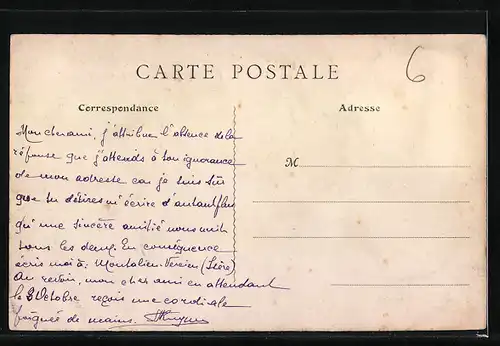 CARTE POSTALE
6
Correspondance
Adresse
M
Mon cher ami, j'attribue l'absence de la
réponse que j'attends à ton ignorance
de mon adresse car je suis sûr
que tu désires m'écrire d'autant plus
qu'une sincère amitié nous unit
tous les deux. En conséquence
écris moi à: Montalieu-Vercieu (Isère)
Au revoir, mon cher ami en attendant
le 8 Octobre reçois une cordiale
poignée de mains.